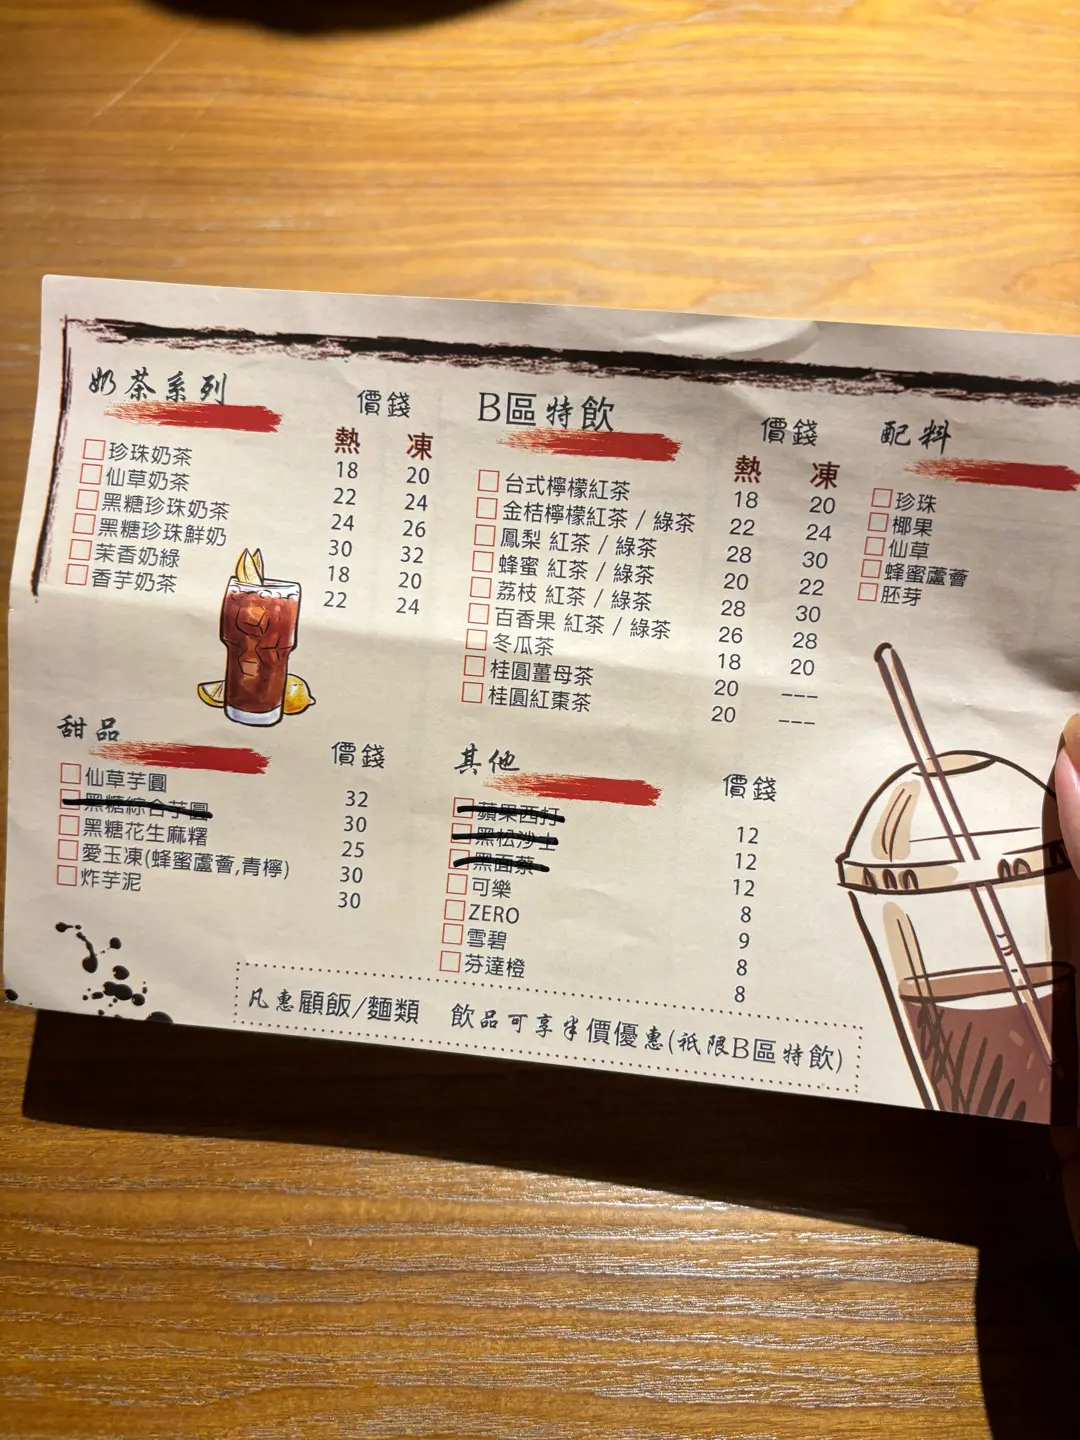 奶茶系列 價錢
熱 凍
珍珠奶茶 18 20
仙草奶茶 22 24
黑糖珍珠奶茶 24 26
黑糖珍珠鮮奶 30 32
茉香奶綠 18 20
香芋奶茶 22 24
B區特飲 價錢
熱 凍
台式檸檬紅茶 18 20
金桔檸檬紅茶 / 綠茶 22 24
鳳梨 紅茶 / 綠茶 28 30
蜂蜜 紅茶 / 綠茶 20 22
荔枝 紅茶 / 綠茶 28 30
百香果 紅茶 / 綠茶 26 28
冬瓜茶 18 20
桂圓薑母茶 20 ---
桂圓紅棗茶 20 ---
配料
珍珠
椰果
仙草
蜂蜜蘆薈
胚芽
甜品 價錢
仙草芋圓 32
黑糖綜合芋圓 30
黑糖花生麻糬 25
愛玉凍(蜂蜜蘆薈,青檸) 30
炸芋泥 30
其他 價錢
蘋果西打 12
黑松沙士 12
黑面蔡 12
可樂 8
ZERO 9
雪碧 8
芬達橙 8
凡惠顧飯/麵類 飲品可享半價優惠(祇限B區特飲)